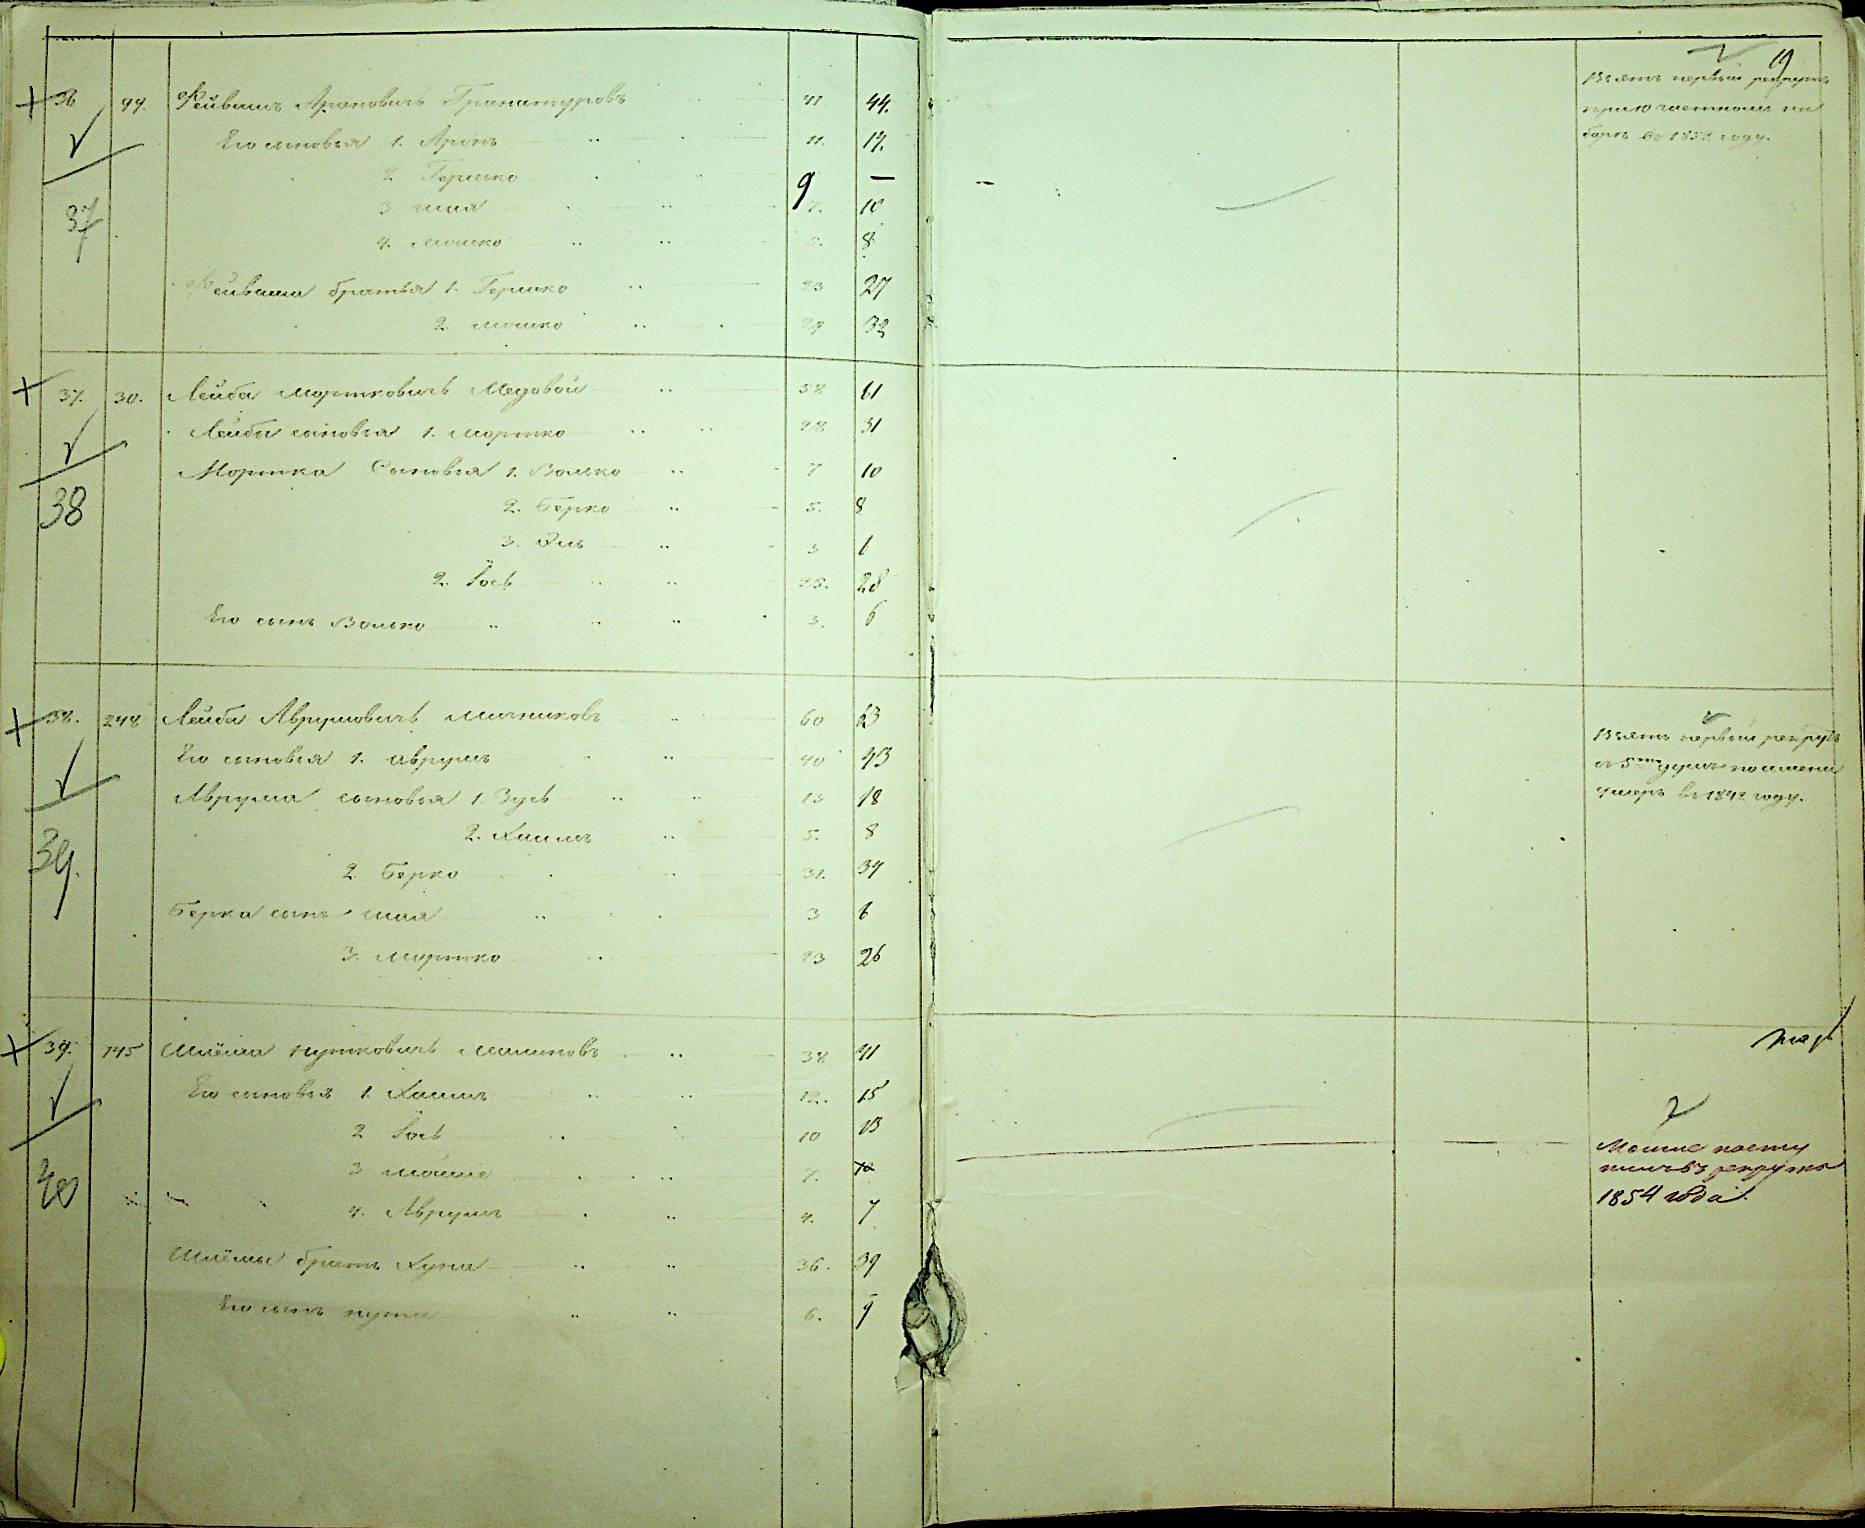 19
36 99. Фейвишъ Ароновичъ Гранатуровъ 41 44.
Его сыновья 1. Аронъ 11. 14.
2. Гершко 9 —
37 3. Шая 7. 10
4. Мошко 5. 8
Фейвиша братья 1. Гершко 23 27
2. Мошко 29 32
Взятъ первый рекрутъ
при 10 частномъ на
борѣ въ 1852 году.
37. 30. Лейба Мортковичъ Медовой 58 61
Лейбы сыновья 1. Мортко 28 31
Мортка Сыновья 1. Волько 7 10
38 2. Берко 5. 8
3. 3 6
2. Іось 25. 28
Его сынъ Волько 3. 6
38. 248 Лейба Аврумовичъ Мичниковъ 60 63
Его сыновья 1. Аврумъ 40 43
Аврума сыновья 1. Зусь 15 18
2. Хаимъ 5. 8
39. 2. Берко 31. 34
Берка сынъ Шая 3 6
3. Мортко 23 26
Взятъ первый рекрутъ
умеръ въ 1842 году.
39. 145 Шлёма Нутковичъ Малиновъ 38 41
Его сыновья 1. Хаимъ 12. 15
2 Іось 10 13
3 Мошко 7. 10
40 4. Аврумъ 4. 7
Шлёмы братъ Хуна 36. 39
Его сынъ Нута 6. 9
Мошко
рекруты
1854 года.